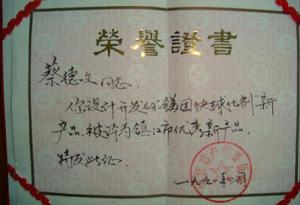 榮譽證書
蔡德文同志:
你设计开发的"锑团块球化剂"新
产品,被评为镇江市优秀新产品.
特发此证
一九九〇年 月